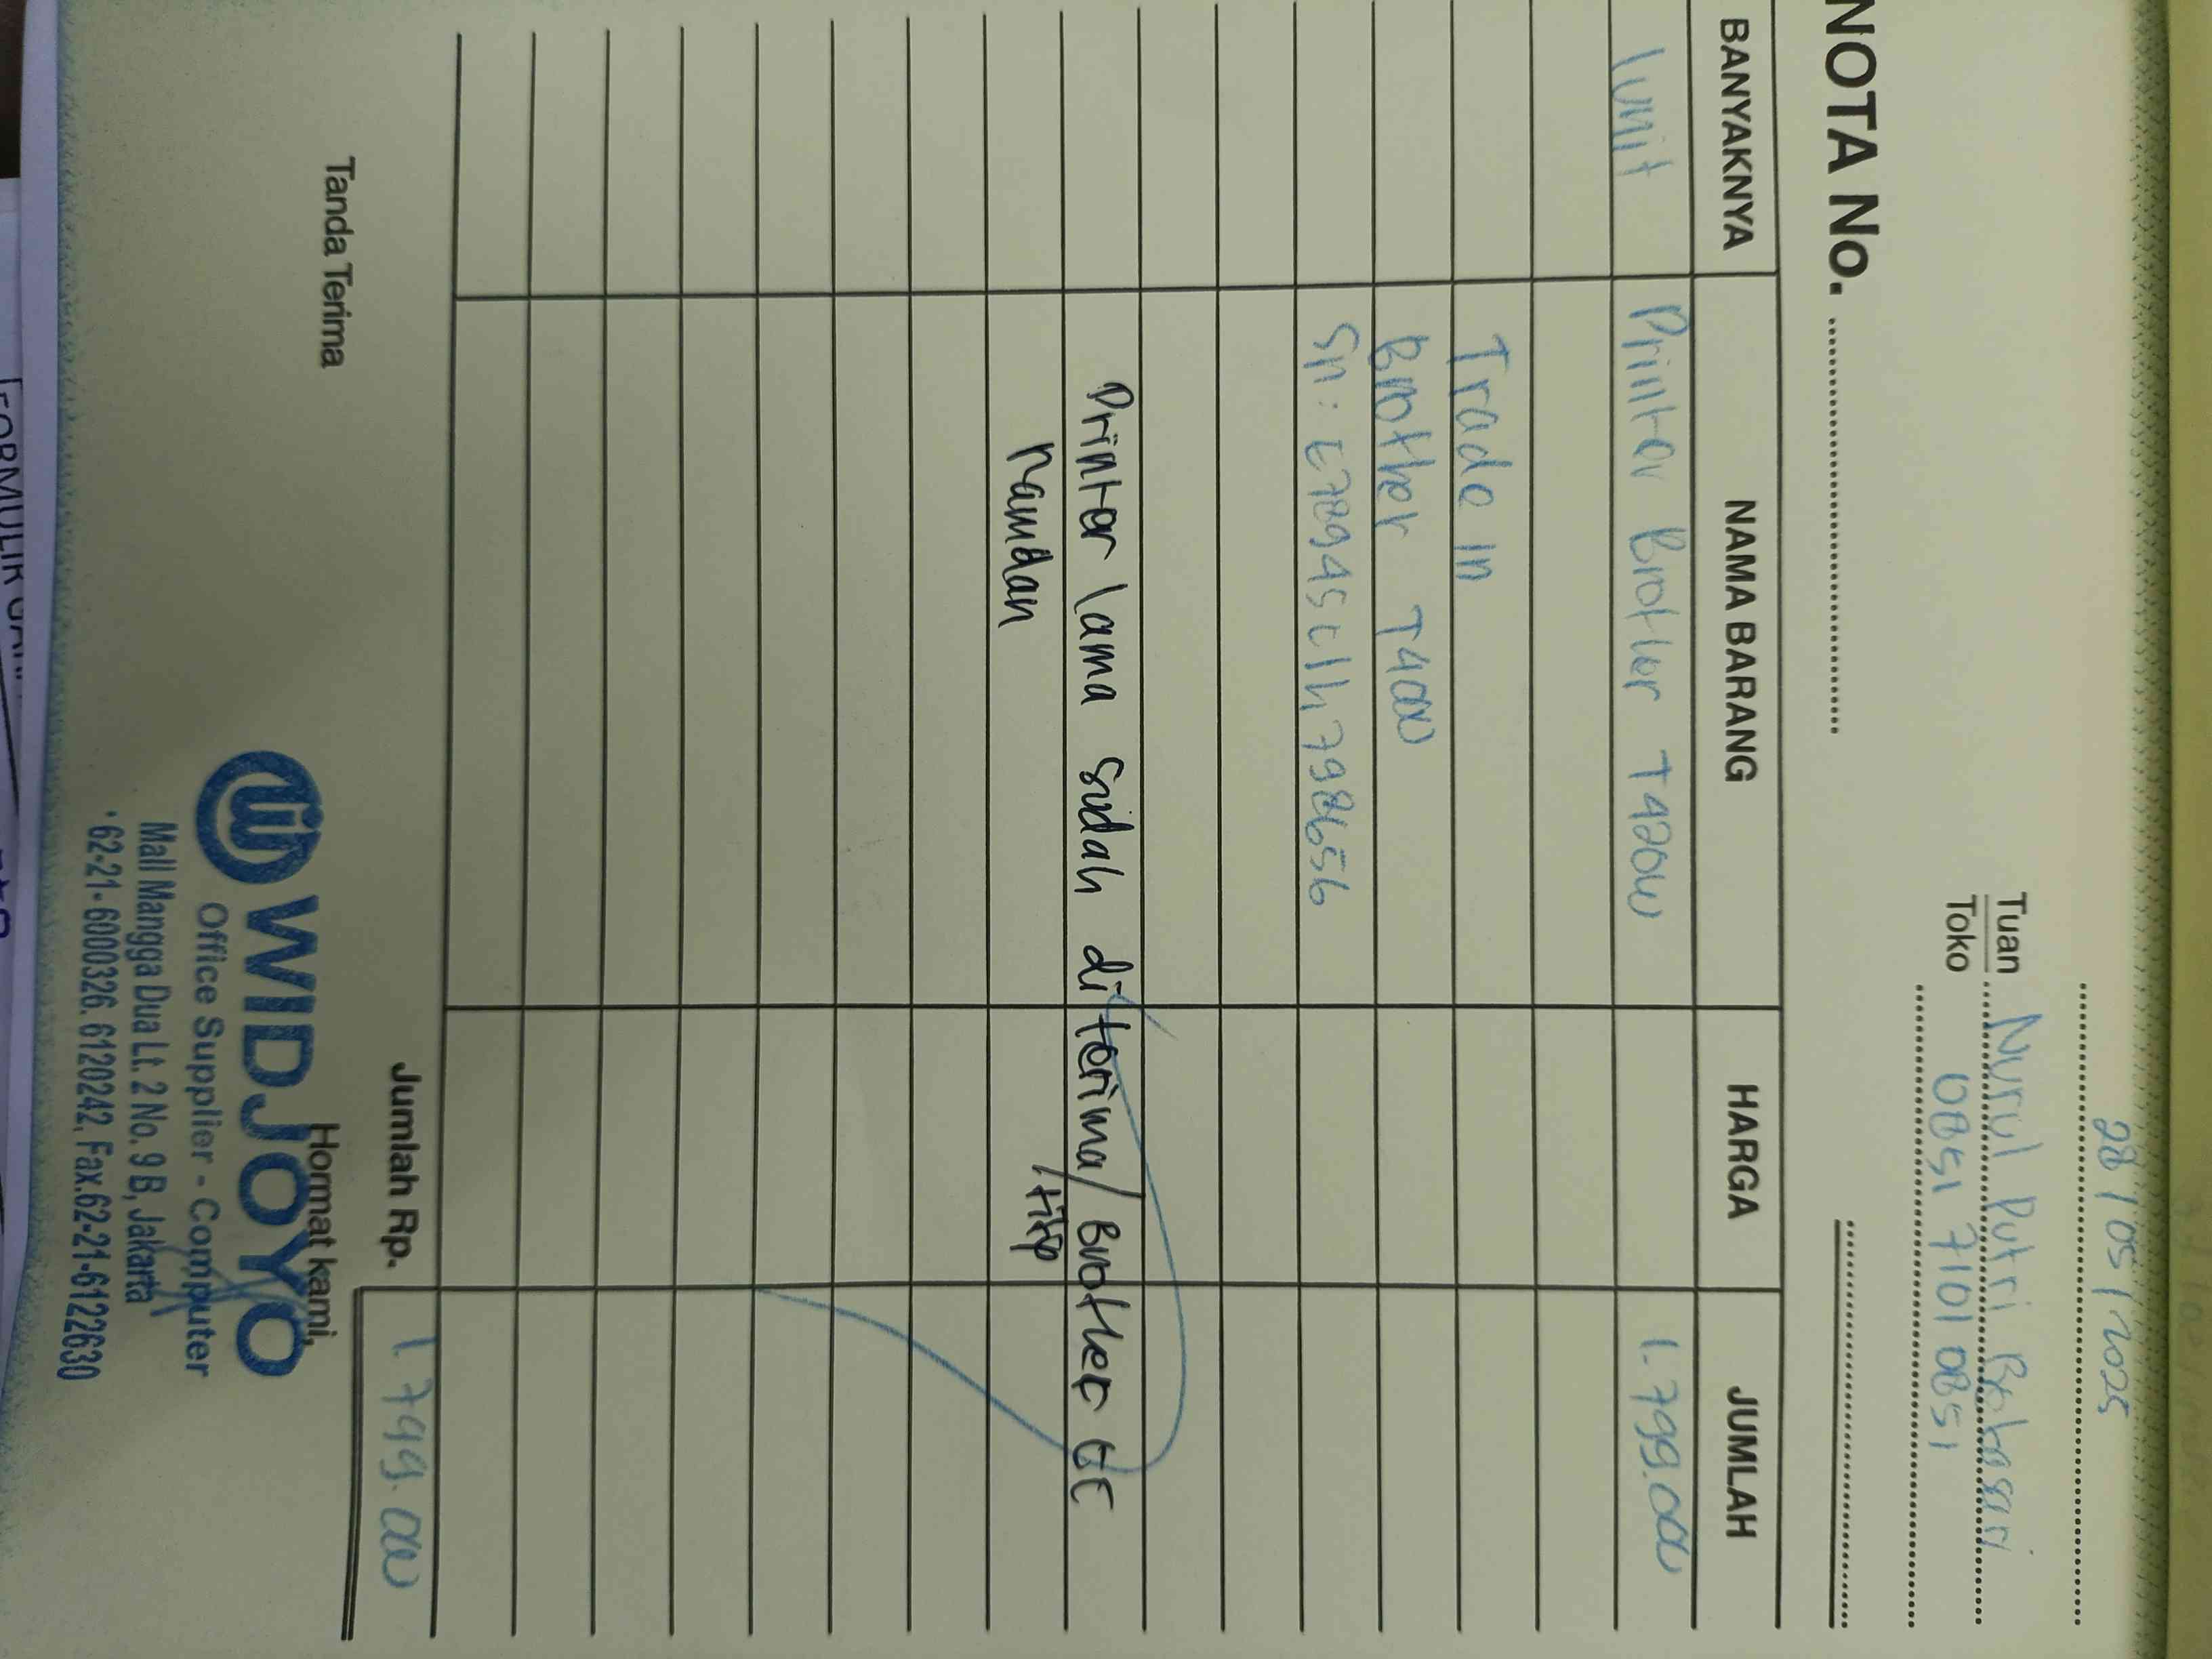 28/05/2025
Tuan Nurul Putri Balqsari
Toko 0851 7101 0851
NOTA No.
BANYAKNYA NAMA BARANG HARGA JUMLAH
1 unit Printer Brother T420W 1.799.000
Trade in
Brother T4000
Sn: E78945L1H798656
Printer lama sudah di terima/Brother
Ramdan
Jumlah Rp. 1.799.000
Tanda Terima Hormat kami,
WIDJOYO
Office Supplier - Computer
Mall Mangga Dua Lt. 2 No. 9 B, Jakarta
62-21-6000326. 6120242, Fax.62-21-6122630
FORMULIR